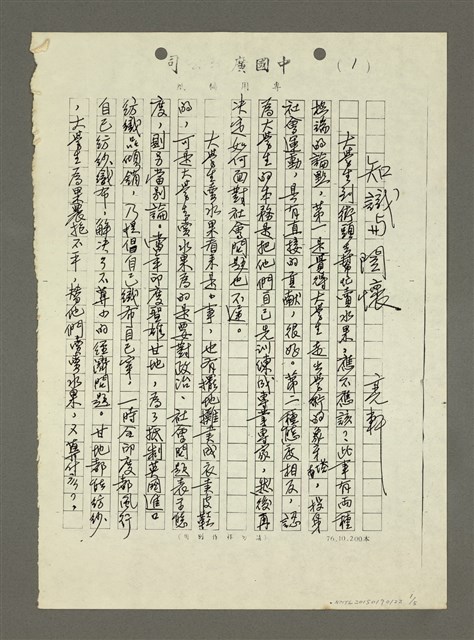 (1)
中國廣 司
專用稿紙
知識與關懷
亮軒
大學生到街頭去幫忙賣水果,應不應該?此事有兩種
極端的論點,第一是覺得大學生走出學術的象牙塔,投身
社會運動,是有直接的貢獻,很好。第二種態度相反,認
為大學生的本務是把他們自己先訓練成專業專家,然後再
決定如何面對社會問題也不遲。
大學生賣水果看來是小事,也有擺地攤賣成衣賣皮鞋
的,可是大學生賣水果為的是要對政治、社會問題表示態
度,則另當別論。當年印度聖雄甘地,為了抵制英國進口
紡織品傾銷,乃提倡自己織布自己穿,一時全印度都風行
自己紡紗織布,解決了不算小的經濟問題。甘地都能紡紗
,大學生為果農抱不平,幫他們賣賣水果,又算什麼?,
76.10.200本
NMTL20150190122
1/3